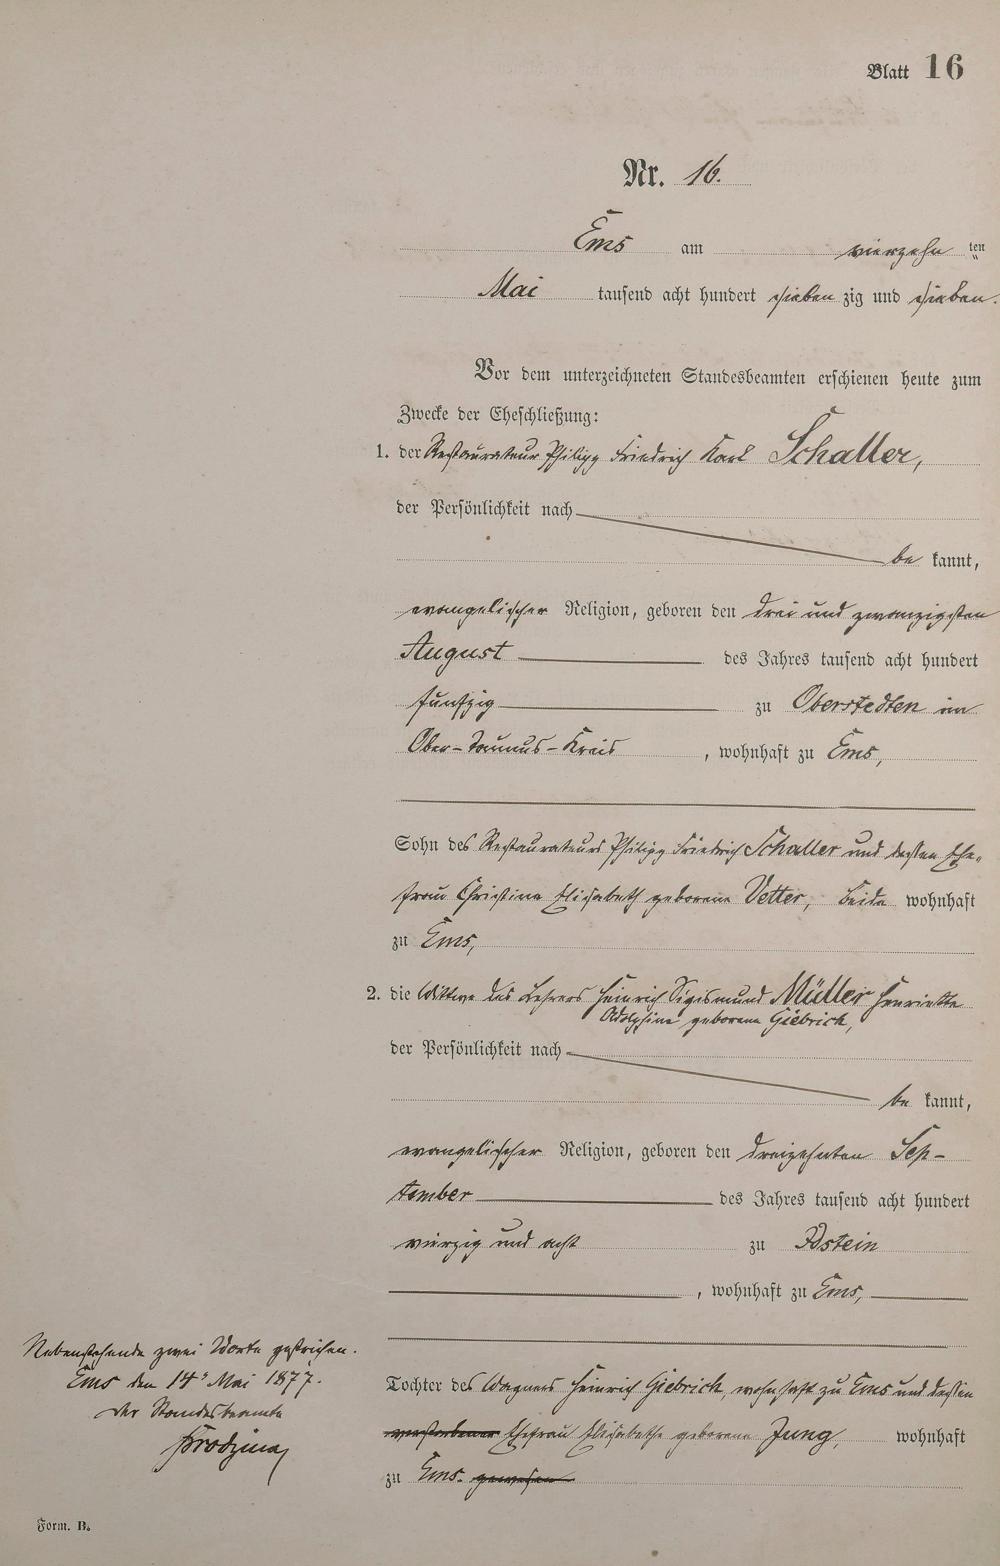 Blatt 16
Nr. 16.
Ems am vierzehn ten
Mai tausend acht hundert sieben zig und sieben.
Vor dem unterzeichneten Standesbeamten erschienen heute zum
Zwecke der Eheschließung:
1. der Restaurateur Philipp Friedrich Karl Schaller,
der Persönlichkeit nach
be kannt,
evangelischer Religion, geboren den drei und zwanzigsten
August des Jahres tausend acht hundert
funfzig zu Oberstedten im
Ober-Taunus-Kreis, wohnhaft zu Ems,
Sohn des Restaurateurs Philipp Friedrich Schaller und dessen Ehe-
frau Christine Elisabeth geborene Vetter, beide wohnhaft
zu Ems,
2. die Wittwe des Lehrers Heinrich Sigismund Müller Henriette
Adolphine geborene Giebrich,
der Persönlichkeit nach
be kannt,
evangelischer Religion, geboren den dreizehnten Sep-
tember des Jahres tausend acht hundert
vierzig und acht zu Idstein
, wohnhaft zu Ems,
Nebenstehende zwei Worte gestrichen.
Ems den 14t Mai 1877.
Der Standesbeamte
Tochter des Wagners Heinrich Giebrich, wohnhaft zu Ems und dessen
verstorbener Ehefrau Elisabethe geborene Jung, wohnhaft
zu Ems. gewesen
Form. B.